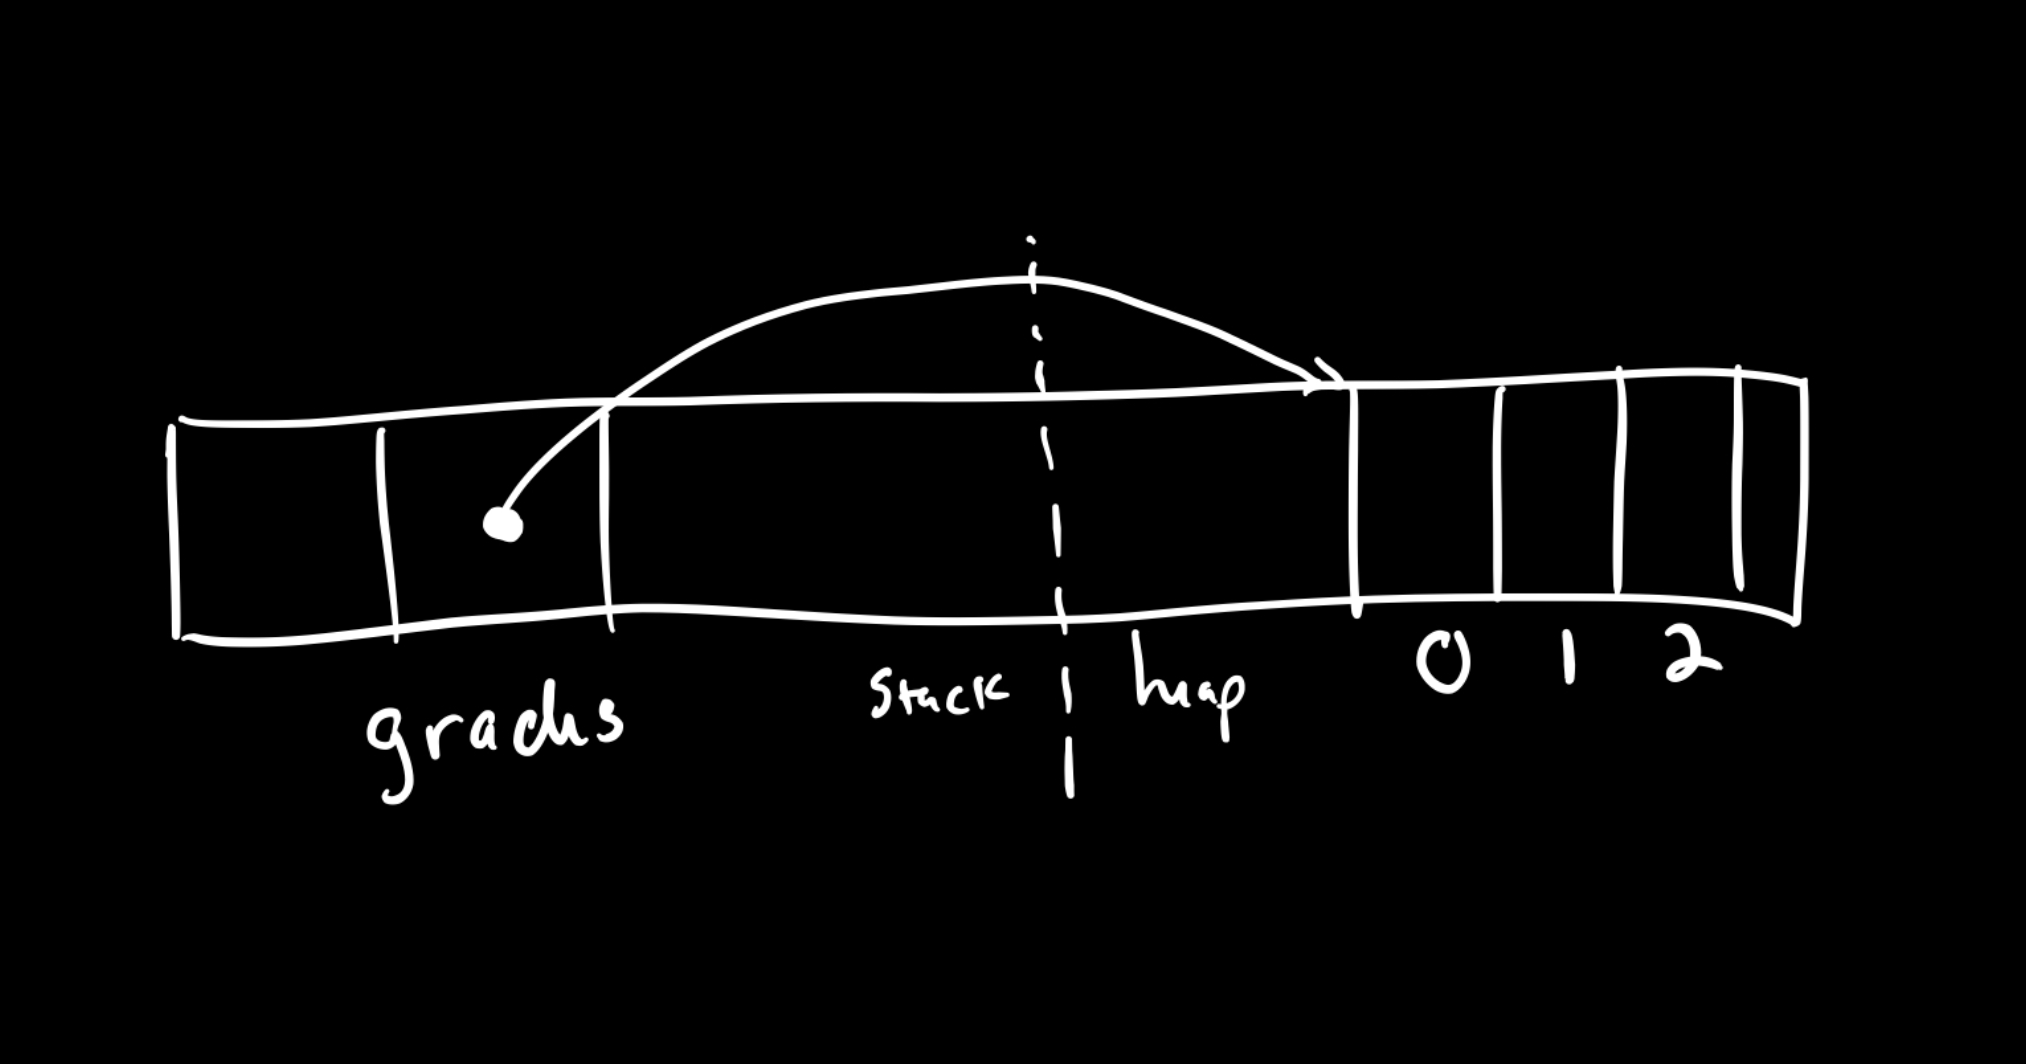 grades
stack heap 0 1 2